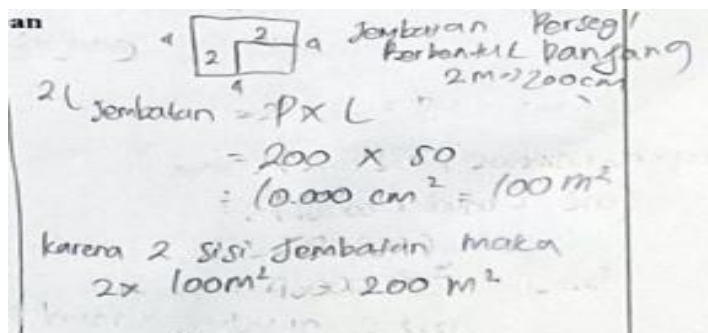 an
2
4 2 9 Jembatan Persegi
4 berbentuk panjang
2m => 200 cm
2L Jembatan = P x L
= 200 x 50
= 10.000 cm² = 100 m²
Karena 2 sisi Jembatan maka
2x 100m² => 200 m²